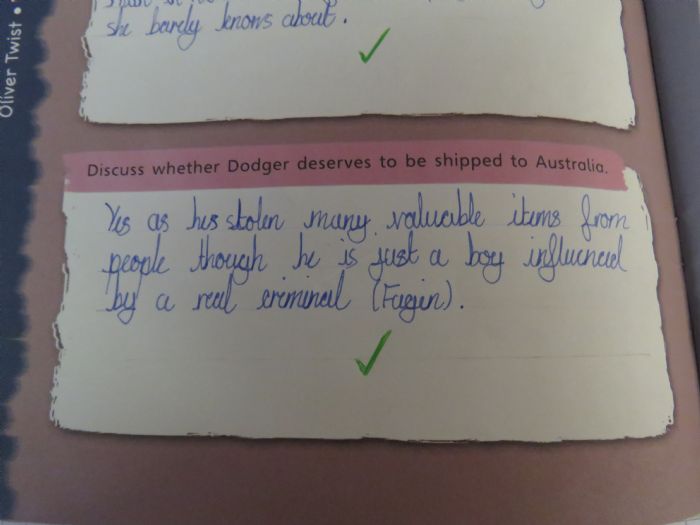 she barely knows about.
Oliver Twist •
Discuss whether Dodger deserves to be shipped to Australia.
Yes as hes stolen many valuable items from
people though he is just a boy influenced
by a real criminal (Fagin).